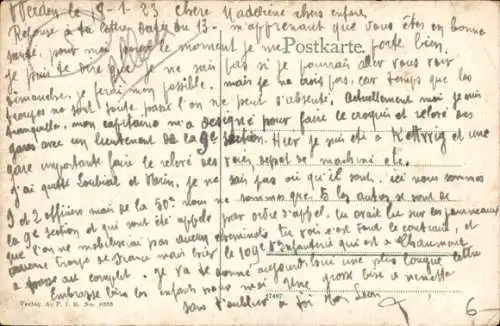 Werden le 18-1-23 Chère Madeleine chers enfants,
Réponse à ta lettre datée du 13. m'apprenant que vous êtes en bonne
santé, pour moi jusqu'à le moment je me porte bien.
Postkarte.
je puis te dire que je ne sais pas si je pourrais aller vous voir
Dimanche, je ferai mon possible. mais je ne crois pas, car temps que les
ne sont toute passé l'on ne peut s'absenté, Actuellement moi je suis
tranquille, mon capitaine m'a designé pour faire le croquis et relevé des
gares avec un lieutenant de la 9e section. Hier je suis été à Kettwig et une
gare importante faire le relevé des voies depot de machine etc.
J'ai quitté Loubial et Marin, je ne sais pas où qu'il sont. ici nous sommes
1 et 2 officiers mais de la 50e nous ne sommes que 5 les autres se sont de
la 9e section et qui sont été appelé par ordre d'appel. tu avais lu sur les journeaux
que l'on ne mobilisérai pas aucun cheminots tu vois c'est tout le contraire, et
comme troupe de France mais hier le 109e d'Infanterie qui est à Chaumont
a passé au complet. je va te donné aujourd'hui une plus longue lettre
Embrasse bien les enfants pour moi une grosse bise a
sans t'oublier a toi Mon Leon
Verlag
No. 6035
27487
6-